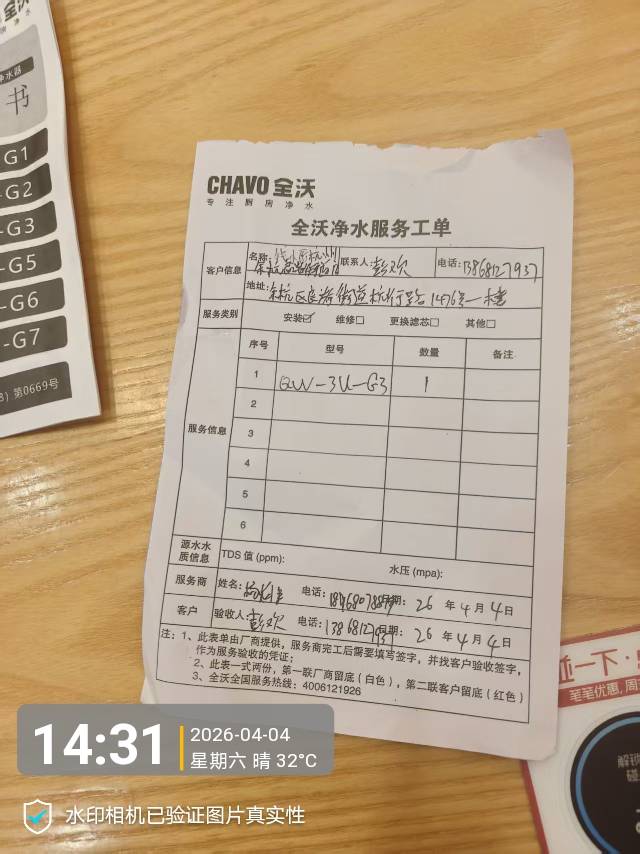 全沃
净水器
书
-G1
-G2
-G3
-G5
-G6
-G7
第0669号
CHAVO 全沃
专注厨房净水
全沃净水服务工单
客户信息
名称:
联系人: 彭欢
电话: 13868127937
地址: 余杭区良渚街道杭行路1476号一楼
服务类别
安装☑ 维修□ 更换滤芯□ 其他□
服务信息
序号 型号 数量 备注
1 QW-3U-G3 1
2
3
4
5
6
源水水质信息
TDS 值 (ppm): 水压 (mpa):
服务商 姓名: 电话: 日期: 26 年 4 月 4 日
客户 验收人: 彭欢 电话: 13868127937 日期: 26 年 4 月 4 日
注: 1、此表单由厂商提供，服务商完工后需要填写签字，并找客户验收签字，
作为服务验收的凭证;
2、此表一式两份，第一联厂商留底（白色），第二联客户留底（红色）
3、全沃全国服务热线: 4006121926
碰一下·
笔笔优惠, 周
解锁
碰
14:31
2026-04-04
星期六 晴 32°C
水印相机已验证图片真实性